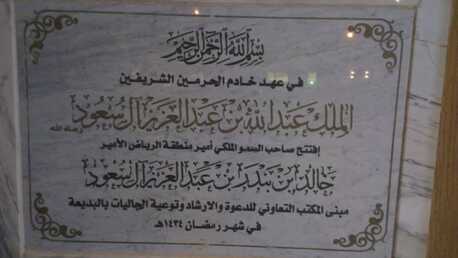 بسم الله الرحمن الرحيم
في عهد خادم الحرمين الشريفين
الملك عبدالله بن عبدالعزيز آل سعود حفظه الله
إفتتح صاحب السمو الملكي أمير منطقة الرياض الأمير
خالد بن بندر بن عبدالعزيز آل سعود
مبنى المكتب التعاوني للدعوة والارشاد وتوعية الجاليات بالبديعة
في شهر رمضان ١٤٣٤هـ